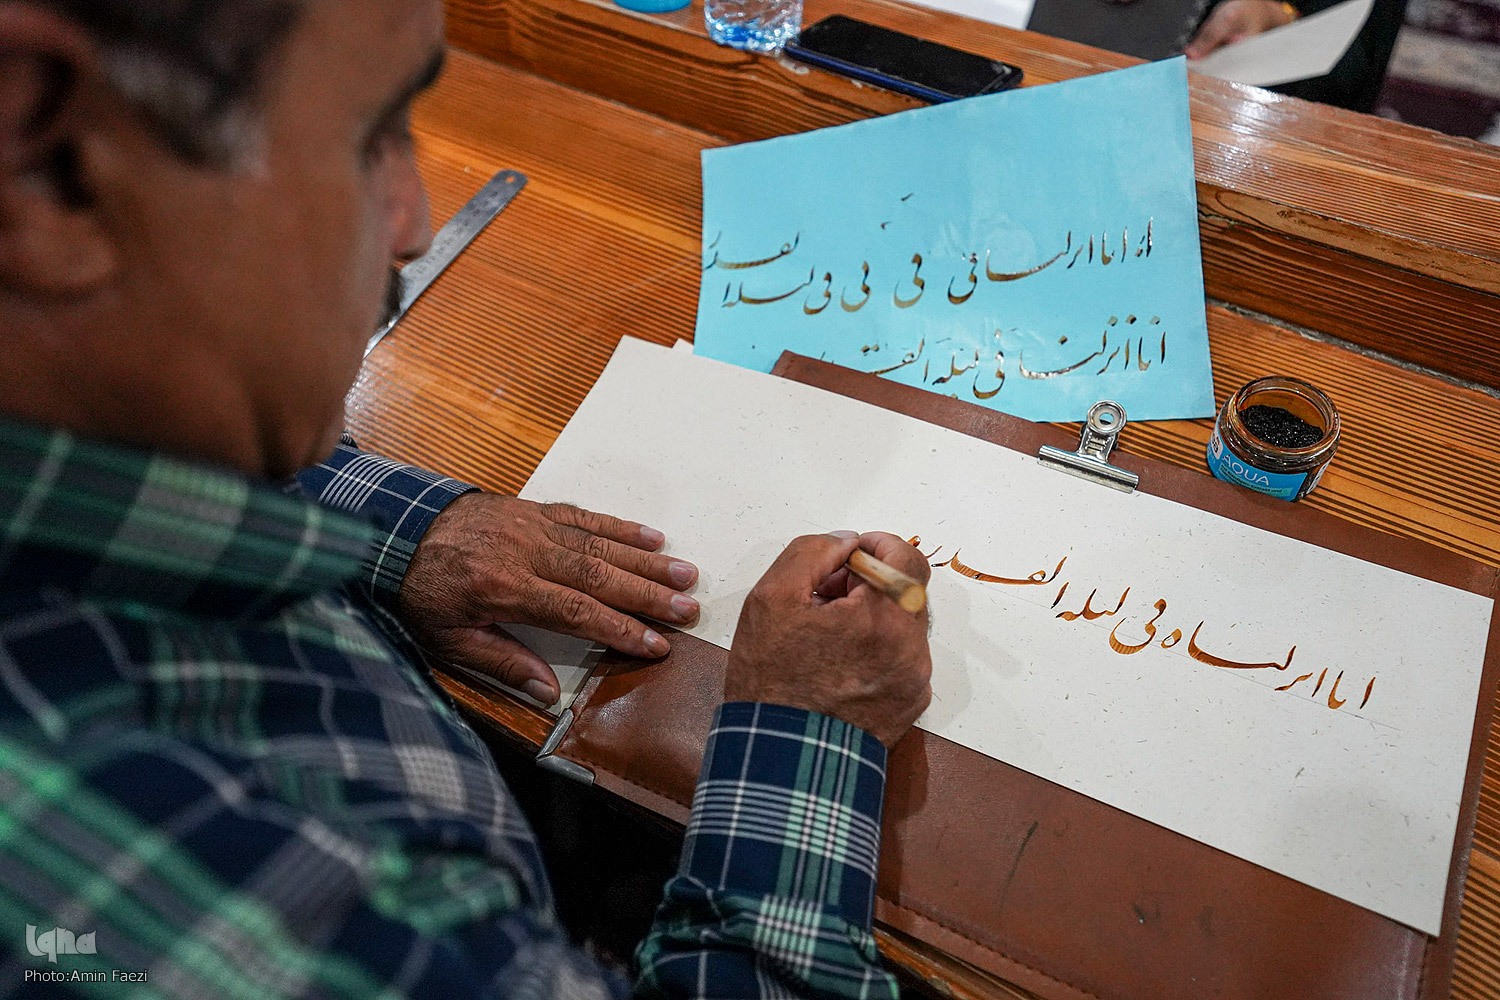 اناانزلنا فی فی فی لیلةا لقدر
انا انزلنا فی لیلة القد
انا انزلناه فی لیله القدر
AQUA
Iqna
Photo:Amin Faezi